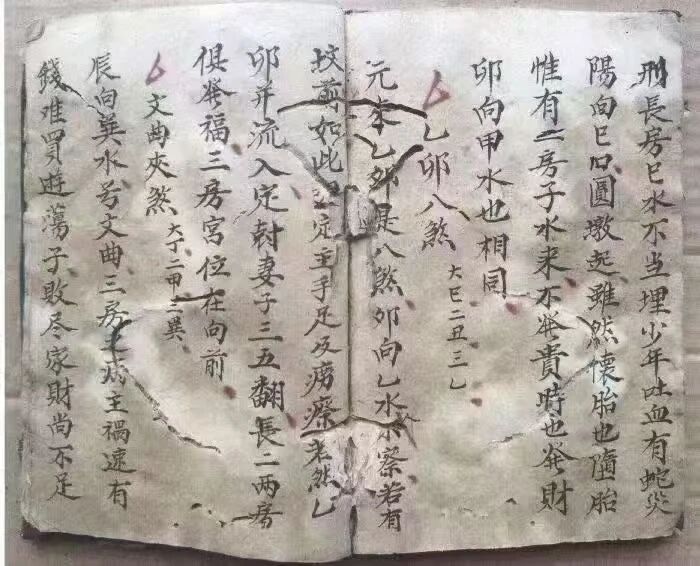 刑長房巳水不当埋少年吐血有蛇災
陽向巳口圓墩起雖然懷胎也墮胎
惟有二房子水来不發貴時也發財
卯向甲水也相同
乙卯八煞
大巳二丑三乙
元来乙卯是八煞卯向乙水不察若有
坟前如此定主手足及癆瘵老然乙
卯并流入定尅妻子三五翻長二两房
俱發福三房宮位在向前
文曲夾煞
大丁二甲三巽
辰向巽水号文曲三房主病主禍速有
錢难買遊蕩子敗尽家財尚不足